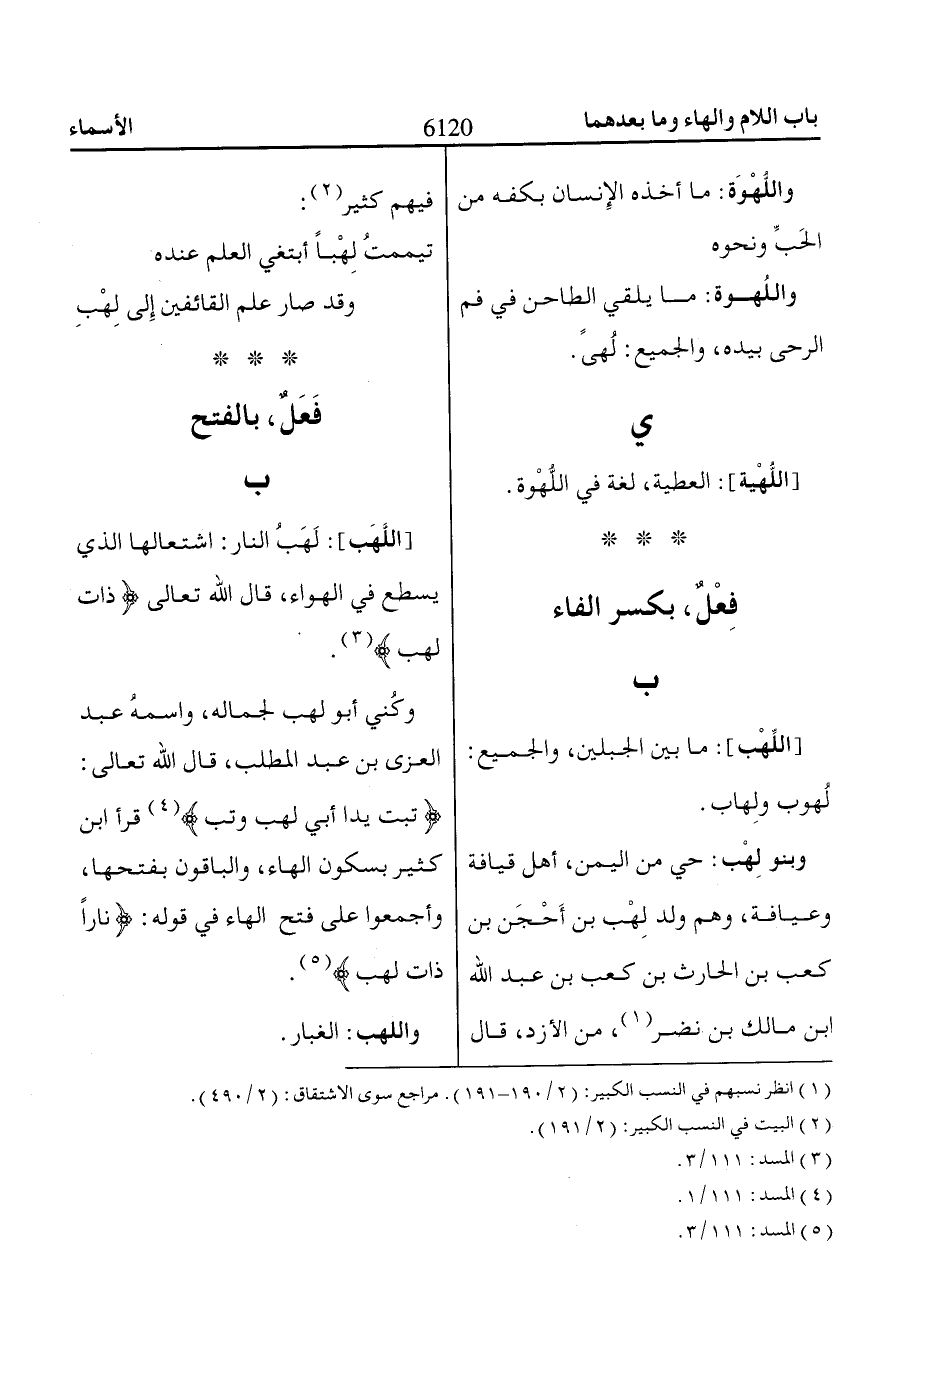 باب اللام والهاء وما بعدهما
6120
الأسماء
واللُّهْوَة: ما أخذه الإنسان بكفه من
الحَبِّ ونحوه
واللُهوة: ما يلقي الطاحن في فم
الرحى بيده، والجميع: لُهىً.
ي
[اللُّهْية]: العطية، لغة في اللُّهْوة.
* * *
فِعْلٌ، بكسر الفاء
ب
[اللِّهْب]: ما بين الجبلين، والجميع:
لُهوب ولِهاب.
وبنو لِهْب: حي من اليمن، أهل قيافة
وعيافة، وهم ولد لِهْب بن أَحْجَن بن
كعب بن الحارث بن كعب بن عبد الله
ابن مالك بن نضر(١)، من الأزد، قال
فيهم كثير(٢):
تيممتُ لِهْباً أبتغي العلم عنده
وقد صار علم القائفين إلى لِهْبِ
* * *
فَعَلٌ، بالفتح
ب
[اللَّهَب]: لَهَبُ النار: اشتعالها الذي
يسطع في الهواء، قال الله تعالى ﴿ذات
لهب﴾(٣).
وكُني أبو لهب لجماله، واسمهُ عبد
العزى بن عبد المطلب، قال الله تعالى:
﴿تبت يدا أبي لهب وتب﴾(٤) قرأ ابن
كثير بسكون الهاء، والباقون بفتحها،
وأجمعوا على فتح الهاء في قوله: ﴿ناراً
ذات لهب﴾(٥).
واللهب: الغبار.
(١) انظر نسبهم في النسب الكبير: (٢/١٩٠-١٩١). مراجع سوى الاشتقاق: (٢/٤٩٠).
(٢) البيت في النسب الكبير: (٢/١٩١).
(٣) المسد: ١١١/٣.
(٤) المسد: ١١١/١.
(٥) المسد: ١١١/٣.